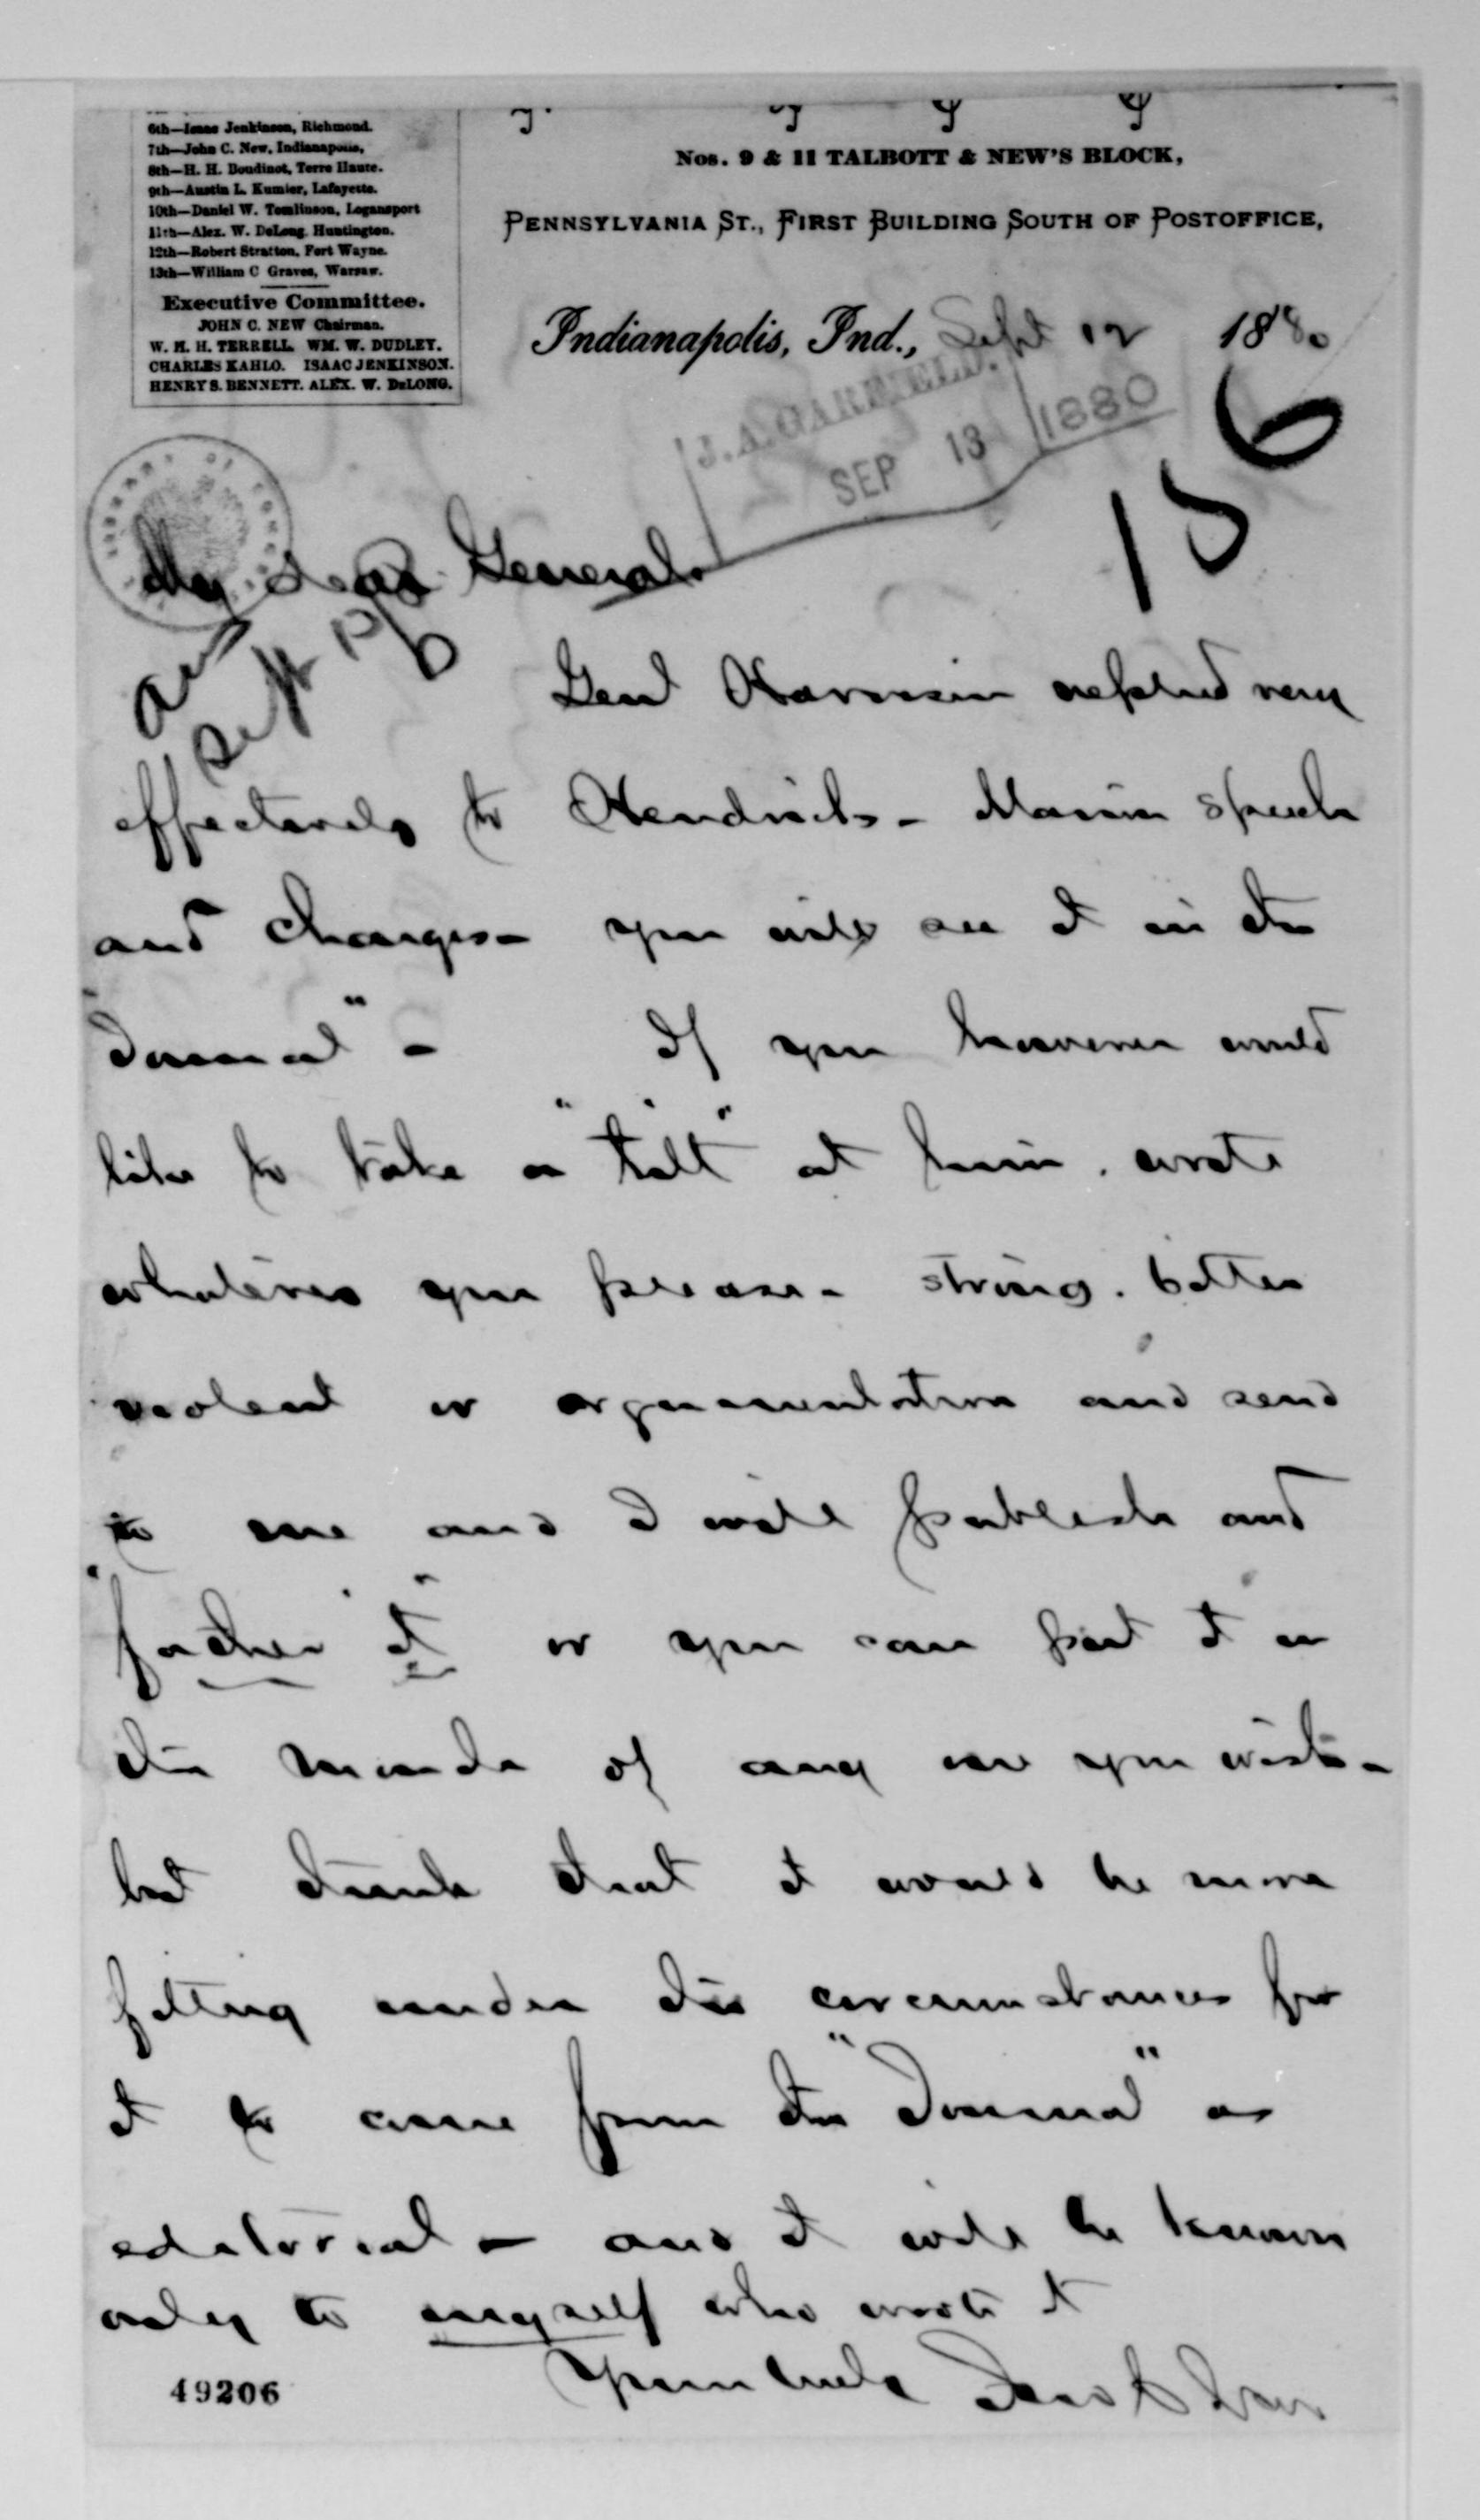 6th—Isaac Jenkinson, Richmond.
7th—John C. New, Indianapolis,
8th—H. H. Boudinot, Terre Haute.
9th—Austin L. Kumler, Lafayette.
10th—Daniel W. Tomlinson, Logansport
11th—Alex. W. DeLong, Huntington.
12th—Robert Stratton, Fort Wayne.
13th—William C Graves, Warsaw.
Executive Committee.
JOHN C. NEW Chairman.
W. H. H. TERRELL. WM. W. DUDLEY.
CHARLES KAHLO. ISAAC JENKINSON.
HENRY S. BENNETT. ALEX. W. DeLONG.
Nos. 9 & 11 TALBOTT & NEW'S BLOCK,
PENNSYLVANIA ST., FIRST BUILDING SOUTH OF POSTOFFICE,
Indianapolis, Ind., Sept 12 1880
J. A. GARFIELD.
SEP 13 1880
156
My dear General.
Ans
Sept
Genl Harrison replied very
effectively to Hendricks - Marion speech
and charges - you will see it in the
"Journal" - If you however would
like to take a "tilt" at him. write
whatever you please - strong. bitter
violent or argumentative and send
to me and I will publish and
"father it" or you can put it in
the mouth of any one you wish -
but think that it would be more
fitting under the circumstances for
it to come from the "Journal" as
editorial - and it will be known
only to myself who wrote it
Yours truly Jno C New
49206